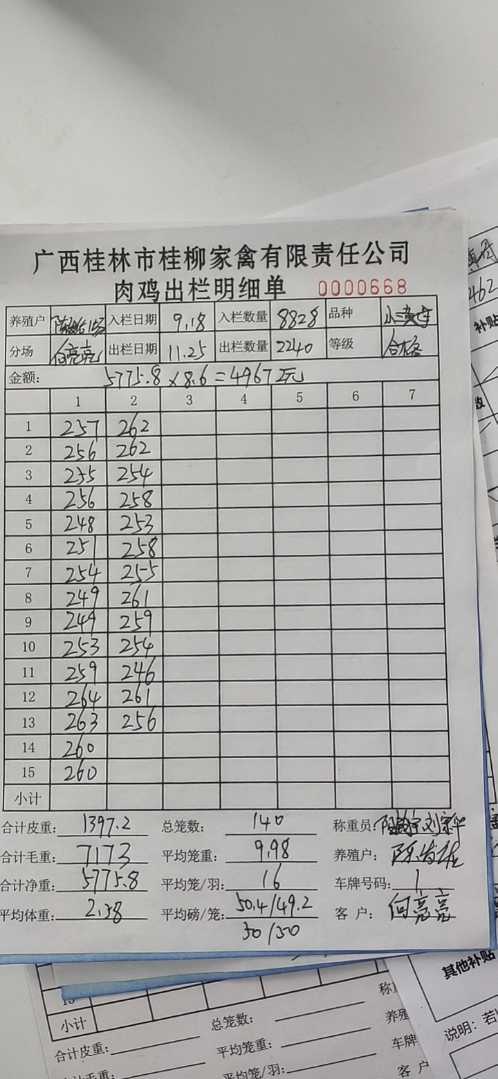 广西桂林市桂柳家禽有限责任公司
肉鸡出栏明细单 0000668
养殖户 入栏日期 9.18 入栏数量 8828 品种
分场 何亮亮 出栏日期 11.25 出栏数量 2240 等级 合格
金额: 5775.8×8.6=49672元
1 2 3 4 5 6 7
1 257 262
2 256 262
3 235 254
4 256 258
5 248 253
6 251 258
7 254 255
8 249 261
9 249 259
10 253 254
11 259 246
12 264 261
13 263 256
14 260
15 260
小计
合计皮重: 1397.2 总笼数: 140 称重员:
合计毛重: 7173 平均笼重: 9.98 养殖户:
合计净重: 5775.8 平均笼/羽: 16 车牌号码: 1
平均体重: 2.58 平均磅/笼: 50.4/49.2 客 户: 何亮亮
50/50
462
补贴
小计
合计皮重:
总笼数:
平均笼重:
平均笼/羽:
养殖
车牌
客 户
其他补贴
说明: 若